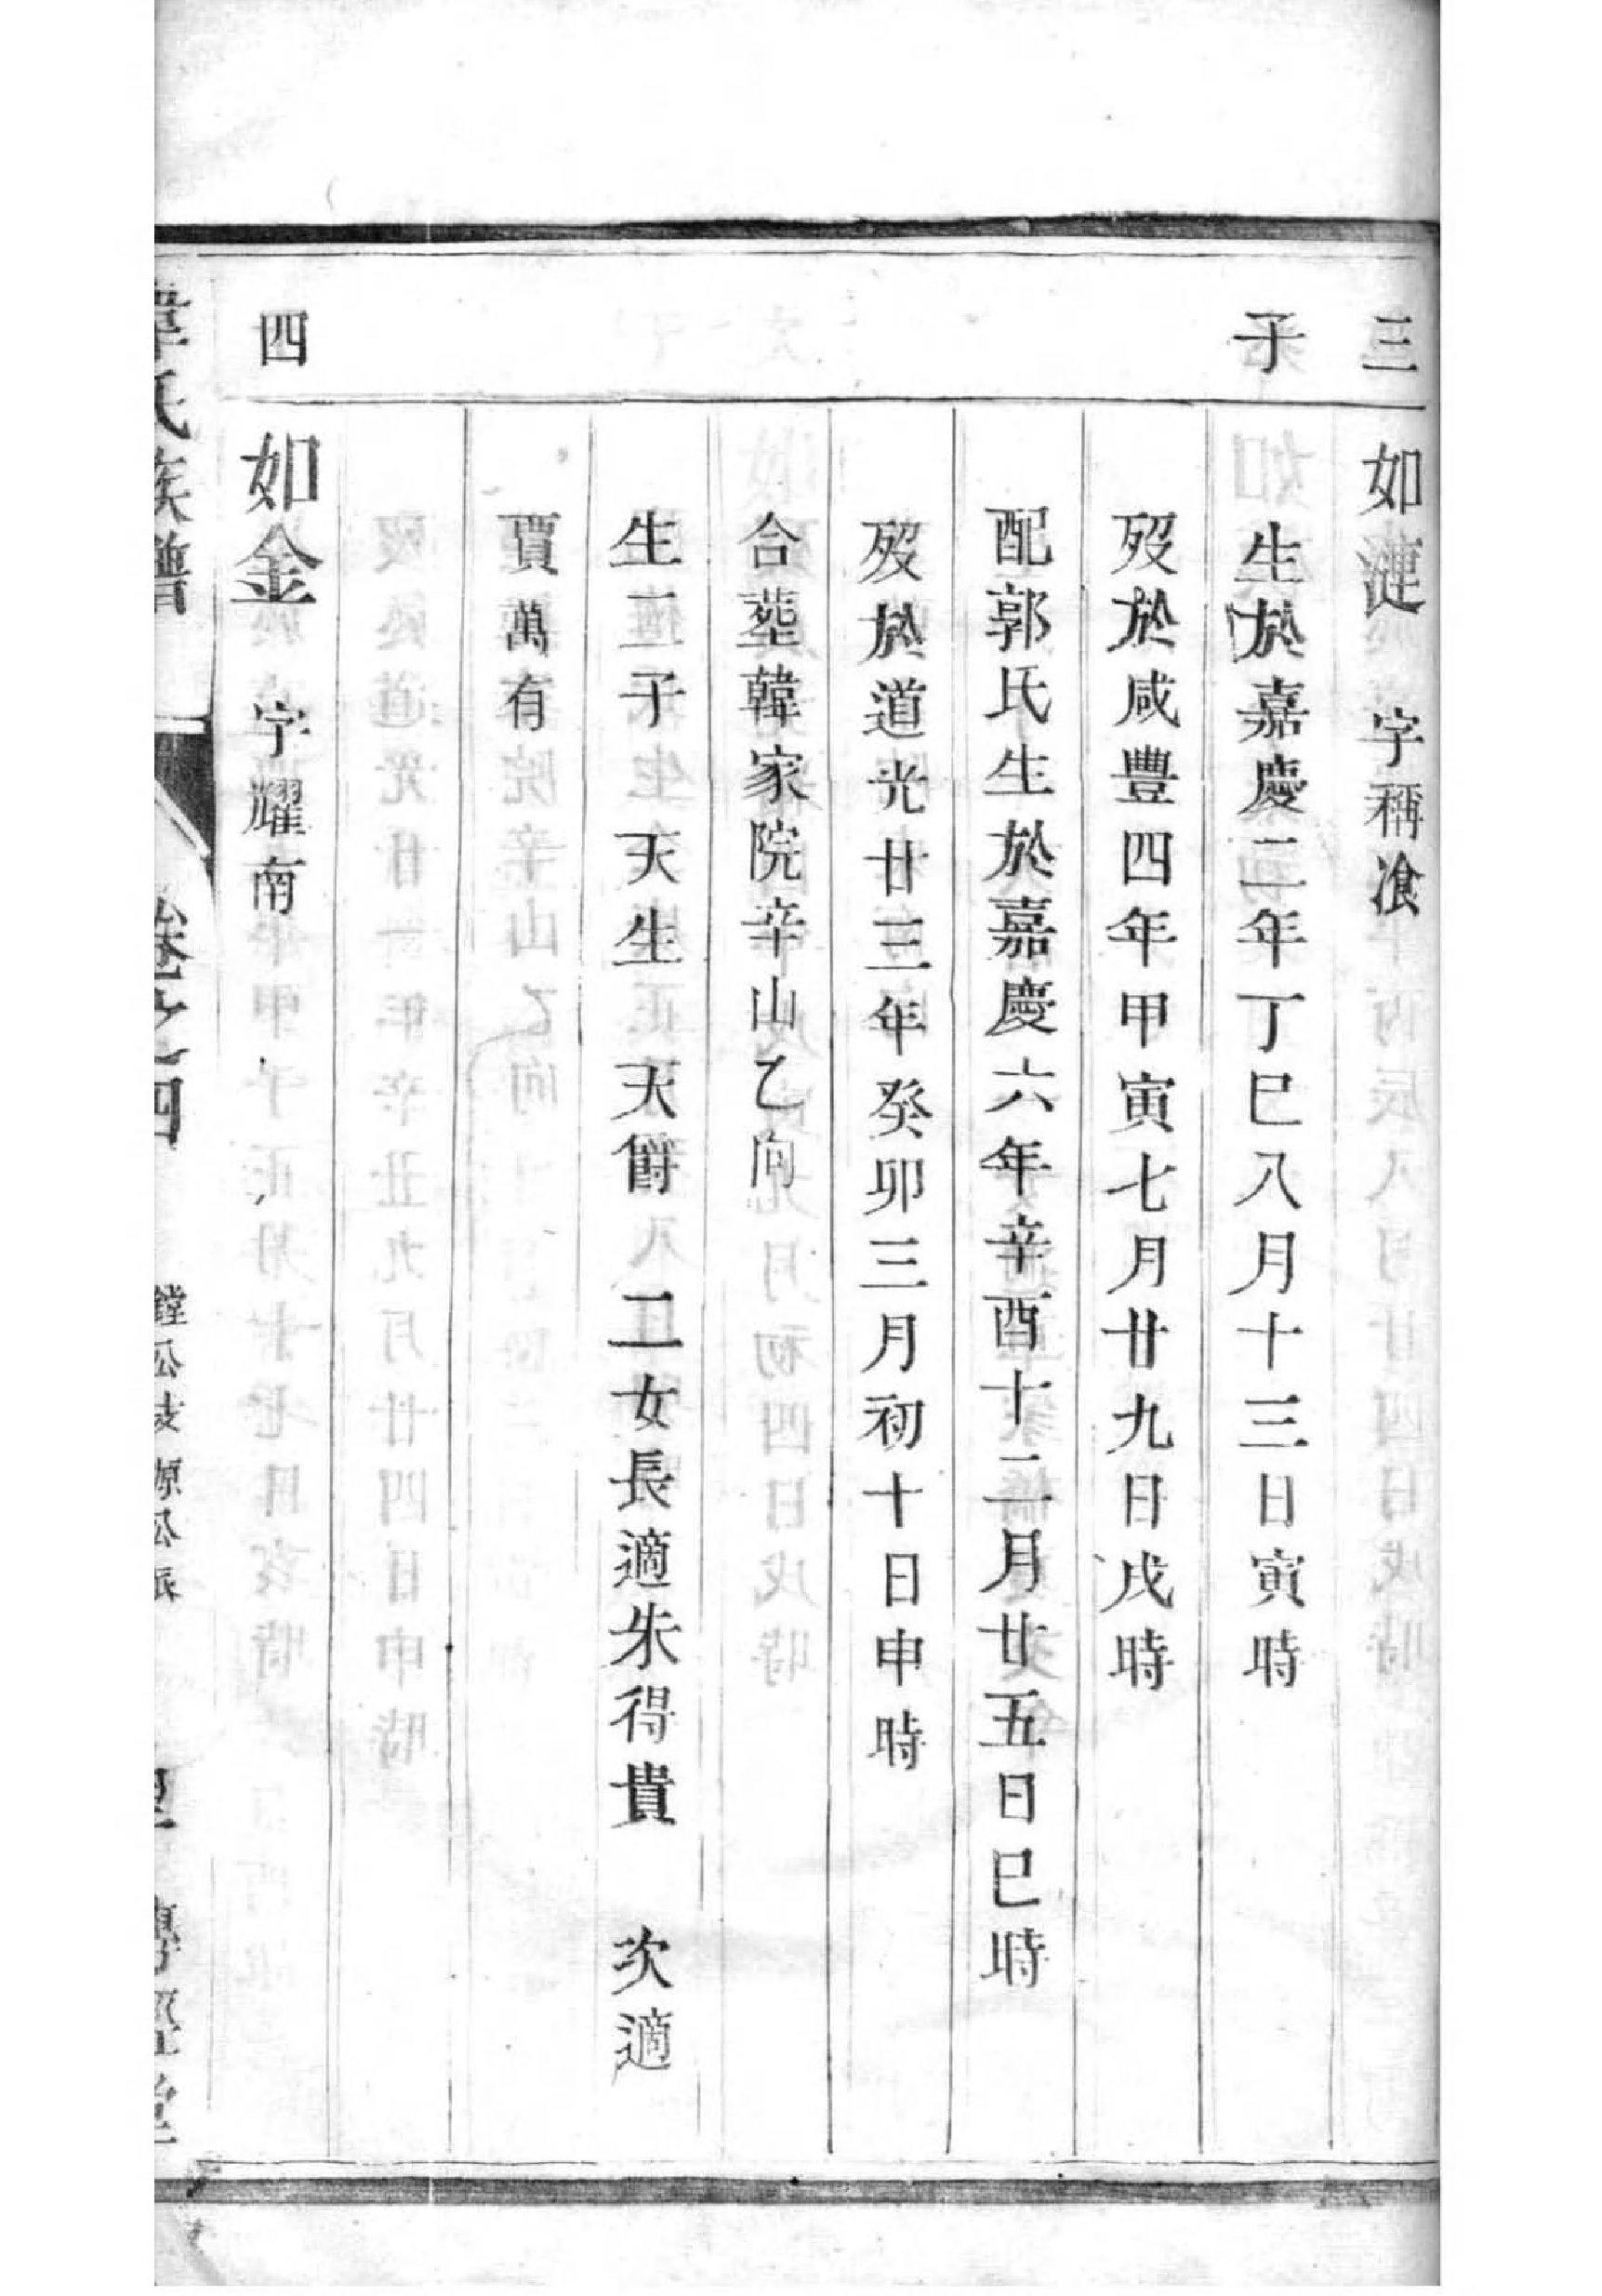 三
如漣 字稱飡
子
生於嘉慶二年丁巳八月十三日寅時
歿於咸豐四年甲寅七月廿九日戌時
配郭氏生於嘉慶六年辛酉十二月廿五日巳時
歿於道光廿三年癸卯三月初十日申時
合塟韓家院辛山乙向
生二子 天生 天爵 二女長適朱得貴 次適
賈萬有
四
如金 字耀南
韋氏族譜
卷之四
鏜公支源公派